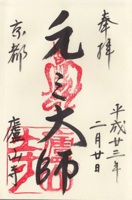 奉拝
平成廿三年
二月廿日
元三大師
京都
廬山寺